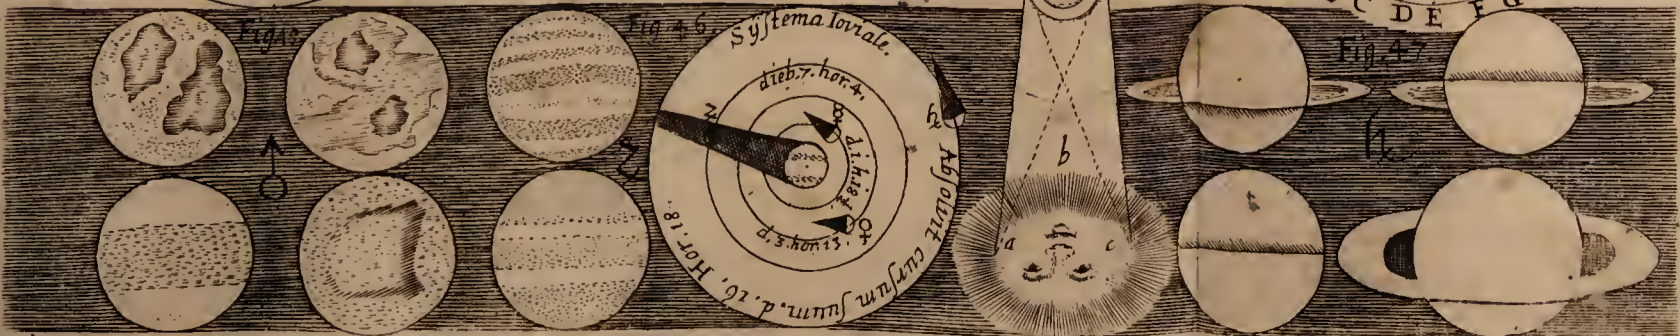 C D E F G
Fig. 45
Fig. 46.
Syſtema Ioviale.
dieb. 7. hor. 4.
d. 1. h. 18½
d. 3. hor. 13.
Abſolvit curſum ſuum. d. 16. Hor. 18.
b
a
c
Fig. 47.